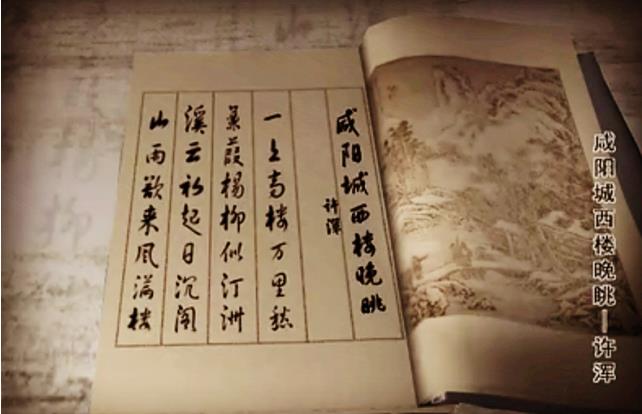 咸阳城西楼晚眺—许浑
咸阳城西楼晚眺
许浑
一上高楼万里愁
蒹葭杨柳似汀洲
溪云初起日沉阁
山雨欲来风满楼